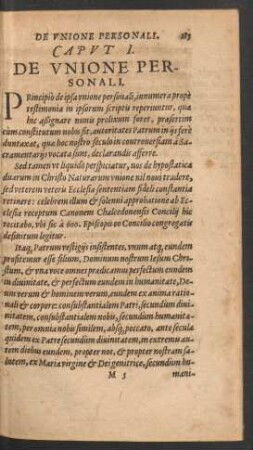 DE VNIONE PERSONALI.
CAPVT I.
DE VNIONE PER-
SONALI.
PRincipiò de ipsa vnione personali, innumera propè
testimonia in ipsorum scriptis reperiuntur, quæ
hic assignare nimis prolixum foret, præsertim
cùm constitutum nobis sit, autoritates Patrum in ijs ferè
duntaxat, quæ hoc nostro seculo in controuersiam à Sa-
cramentarijs vocata sunt, declarandis afferre.
Sed tamen vt liquidò perspiciatur, nos de hypostatica
duarum in Christo Naturarum vnione nil noui tradere,
sed veterem veteris Ecclesiæ sententiam fideli constantia
retinere: celebrem illum & solenni approbatione ab Ec-
clesia receptum Canonem Chalcedonensis Concilij hic
recitabo, vbi sic à 600. Episcopis eo Concilio congregatis
definitum legitur.
Itaq; Patrum vestigijs insistentes, vnum atq; eundem
profitemur esse filium, Dominum nostrum Iesum Chri-
stum, & vna voce omnes prædicamus perfectum eundem
in diuinitate, & perfectum eundem in humanitate, De-
um verum & hominem verum, eundem ex anima ratio-
nali & corpore: consubstantialem Patri, secundùm diui-
nitatem, consubstantialem nobis, secundùm humanita-
tem, per omnia nobis similem, absq; peccato, ante secula
quidem ex Patre secundùm diuinitatem, in extremis au-
tem diebus eundem, propter nos, & propter nostram sa-
lutem, ex Maria virgine & Dei genitrice, secundùm hu-
M 5
mani-